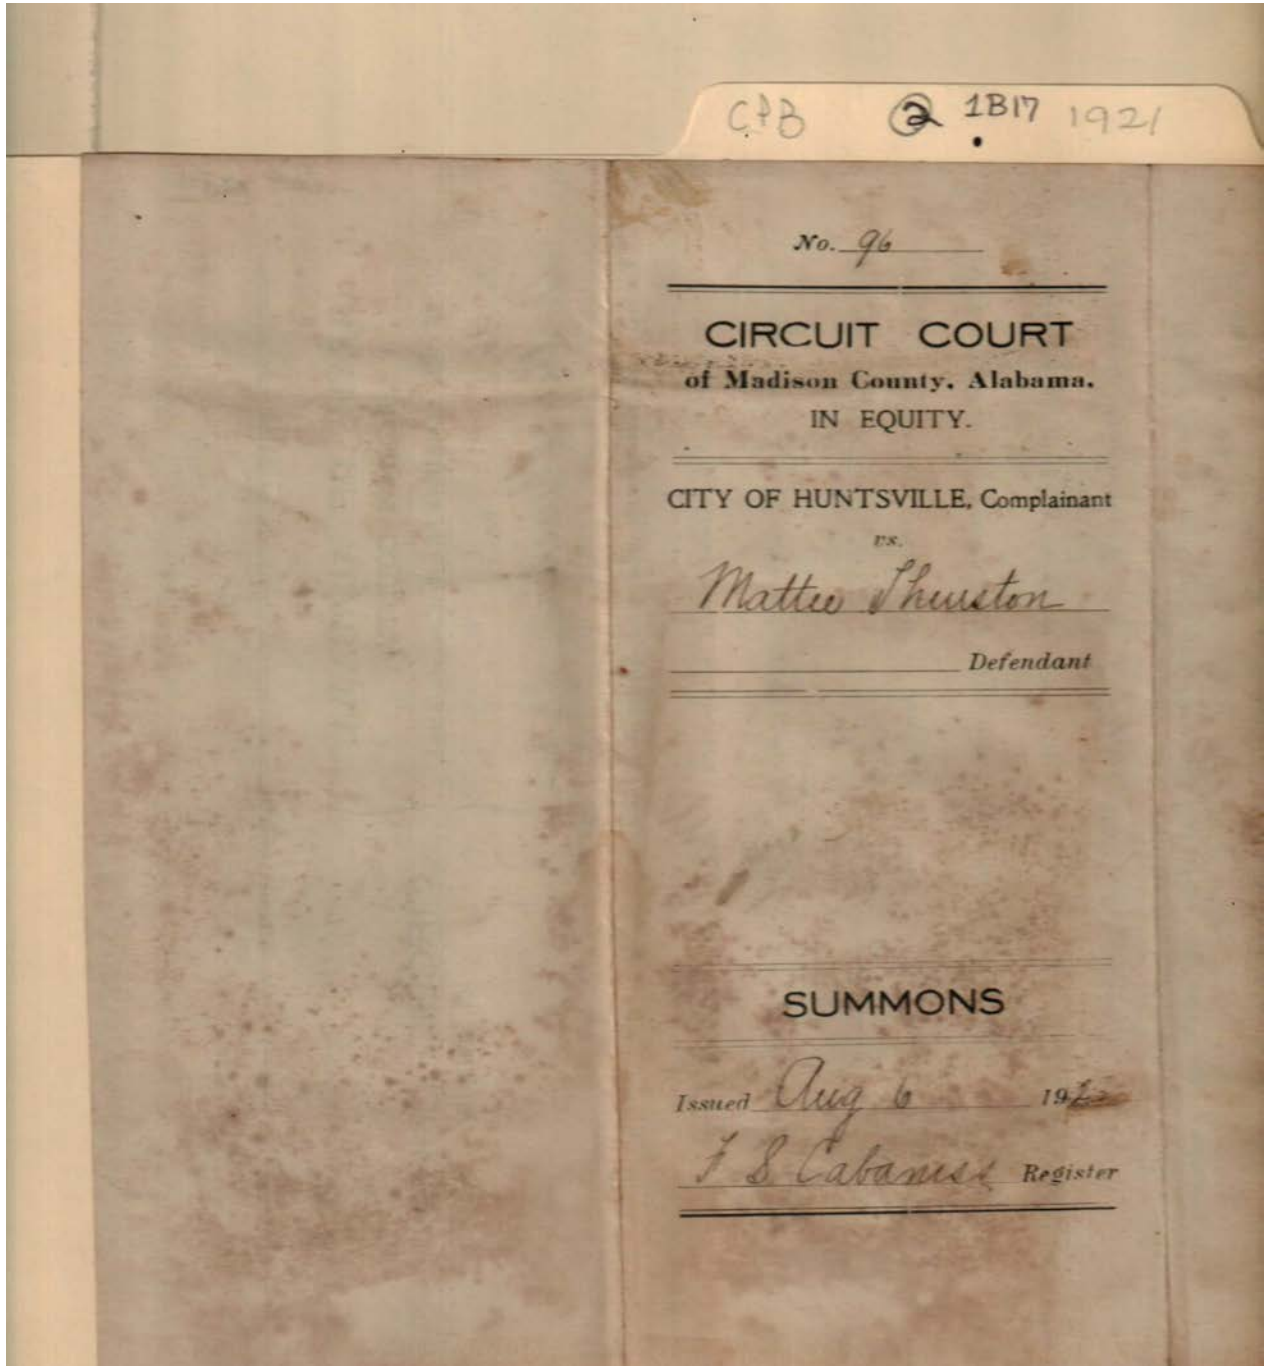 CPB 2 1B17 1921
No. 96
CIRCUIT COURT
of Madison County, Alabama.
IN EQUITY.
CITY OF HUNTSVILLE, Complainant
vs.
Mattie Thurston
Defendant
SUMMONS
Issued Aug 6 19
F S Cabaniss Register